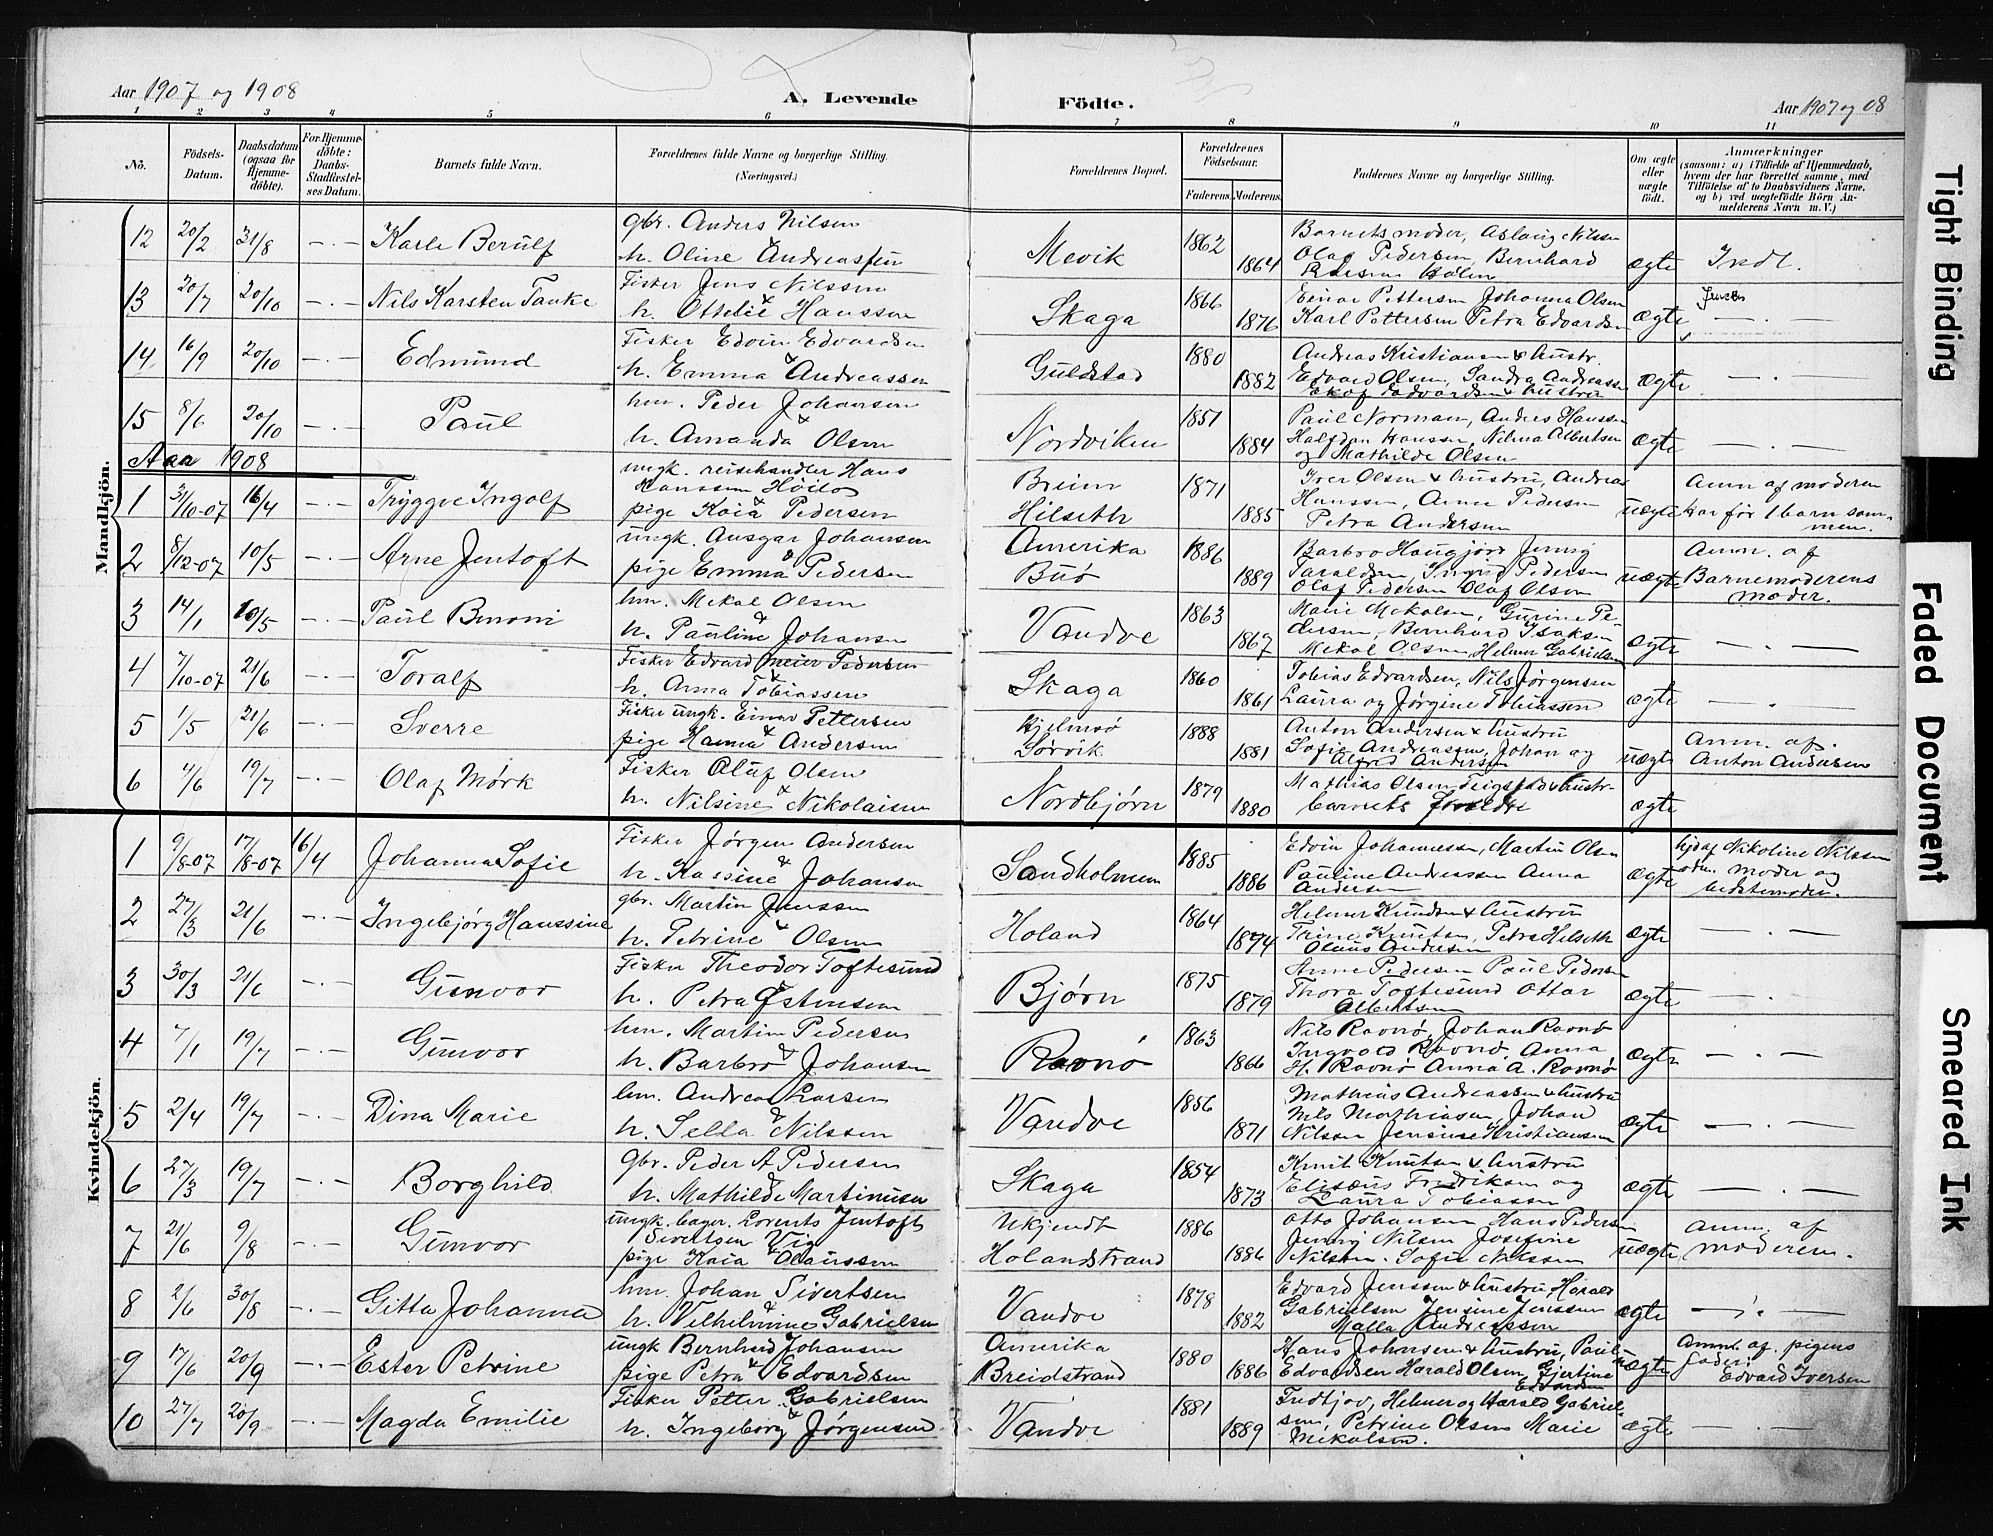 Aar 1907 og 1908
A. Levende Födte.
Aar 1907 og 08
1 2 3 4 5 6 7 8 9 10 11
No. Födsels-Datum. Daabsdatum (ogsaa for Hjemmedöbte). For Hjemmedöbte: Daabs-Stadfæstelses Datum. Barnets fulde Navn. Forældrenes fulde Navne og borgerlige Stilling. (Næringsvei.) Forældrenes Bopæl. Forældrenes Födselsaar. Faderens. Moderens. Faddernes Navne og borgerlige Stilling. Om ægte eller uægte födt. Anmærkninger (saasom: a) i Tilfælde af Hjemmedaab, hvem der har forrettet samme, med Tilföielse af to Daabsvidners Navne, og b) ved uægtefödte Börn Anmelderens Navn m. V.)
Mandkjön.
12 20/2 31/8 -.- Karle Berulf gbr. Anders Nilsen & h. Oline Andreassen Mevik 1862 1864 Barnets moder, Aslaug Nilssen Olaf Pedersen, Bernhard ægte Indl.
13 20/7 20/10 -.- Nils Karsten Tanke Fisker Jens Nilssen & h. Ottelie Hanssen Skaga 1866 1876 Einar Pettersen Johanna Olsen Karl Pettersen Petra Edvardsen ægte -.-
14 16/9 20/10 -.- Edmund Fisker Edvin Edvardsen & h. Emma Andreassen Guldstad 1880 1882 Andreas Kristiansen & hustr. Edvard Olsen, Sandra Andreassen Edvardsen & hustru ægte -.-
15 8/6 20/10 -.- Paul hm. Peder Johansen & h. Amanda Olsen Nordviken 1851 1884 Paul Norman, Andres Hanssen Halfdan Hanssen, Nilma Albertsen og Mathilde Olsen ægte -.-
Aar 1908
1 3/10-07 16/4 -.- Tryggve Ingolf ungk. reisehandler Hans Hanssen Høilo & pige Kaia Pedersen Breim Hilseth 1871 1885 Iver Olsen & hustru, Andreas Hanssen, Anne Pedersen Petra Andersen uægte Anm. af moderen har før 1 barn sammen.
2 8/12-07 10/5 -.- Arne Jentoft ungk. Ansgar Johansen & pige Emma Pedersen Amerika Buø 1886 1889 Barbro Haugjord Jenny Taraldsen Ingrid Pedersen Olaf Pedersen Olaf Olsen uægte Anm. af Barnemoderens moder.
3 14/1 10/5 -.- Paul Benoni hm. Mekal Olsen & h. Pauline Johansen Vandve 1863 1867 Marie Mekalsen, Gurine Pedersen, Bernhard Isaksen Mekal Olsen Helmer Gabrielsen ægte -.-
4 7/10-07 21/6 -.- Toralf Fisker Edvard Meier Pedersen & h. Anna Tobiassen Skaga 1860 1861 Tobias Edvardsen, Nils Jørgensen Laura og Jørgine Tobiassen ægte -.-
5 1/5 21/6 -.- Sverre Fisker ungk. Einar Pettersen & pige Hanna Andersen Hjelmsø Sørvik 1888 1881 Anton Andersen & hustru Sofie Andreassen, Johan og Alfred Andersen uægte Anm. af. Anton Andersen
6 4/6 19/7 -.- Olaf Mørk Fisker Oluf Olsen & h. Nilsine Nikolaisen Nordbjørn 1879 1880 Mathias Olsen Teigstad & hustr- barnets forældre ægte
Kvindekjön.
1 9/8-07 17/8-07 16/4 Johanna Sofie Fisker Jørgen Andersen & h. Hassine Johansen Sandholmen 1885 1886 Edvin Johannessen, Martin Olsen Pauline Andreassen Anna Andersen ægte hjd af Nikoline Nilssen moder og bedstemoder.
2 27/3 21/6 -.- Ingebjørg Hanssine gbr. Martin Jenssen & h. Petrine Olsen Holand 1864 1874 Helmer Knudsen & hustru Trine Knutsen, Petra Helseth Olaus Andersen ægte -.-
3 30/3 21/6 -.- Gunvor Fisker Theodor Toftesund h. Petra Østensen Bjørn 1875 1879 Anne Pedersen Paul Pedersen Thora Toftesund Ottar Albertssen ægte -.-
4 7/1 19/7 -.- Gunvor hm. Martin Pedersen & h. Barbro Johansen Ravnø 1863 1866 Nils Ravnø, Johan Ravnø Ingvald Ravnø. Anna H. Ravnø Anna A. Ravnø ægte -.-
5 2/4 19/7 -.- Dina Marie hm. Andreas Larsen & h. Sella Nilssen Vandve 1856 1871 Mathias Andreassen & hustru Nils Mathiasen, Johan Nilssen Jensine Kristiansen ægte -.-
6 27/3 19/7 -.- Borghild gbr. Peder A Pedersen & h. Mathilde Martinusen Skaga 1854 1873 Knut Knutsen & hustru Elisæus Fredriksen og Laura Tobiassen ægte -.-
7 21/6 9/8 Gunvor ungk. bager. Lorents Jentoft Sivertsen Vig & pige Kaia Olaussen Ukjendt Holandstrand 1886 1886 Otto Johansen Hans Pedersen Jenny Nilsen Josefine Nilsen. Sofie Nilssen uægte Anm. af moderen.
8 2/6 30/8 -.- Gitta Johanna hm. Johan Sivertsen & h. Vilhelmine Gabrielsen Vandve 1878 1882 Edvard Jenssen & hustru Harald Gabrielsen Jensine Jenssen Malla Andreassen ægte -.-
9 17/6 20/9 -.- Ester Petrine ungk Bernhard Johansen & pige Petra Edvardsen Amerika Breidstrand 1880 1886 Hans Johansen & hustru, Paul Edvardsen Harald Olsen Gjertine Edvardsen uægte Anm. af. pigens fader: Edvard Iversen
10 27/7 20/9 -.- Magda Emilie Fisker Petter Gabrielsen & h. Ingeborg Jørgensen Vandve 1881 1889 Fridtjov, Helmer og Harald Gabrielsen, Petrine Olsen Marie Mikalsen. ægte .-
Tight Binding
Faded Document
Smeared Ink